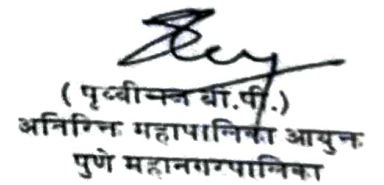 ( पृथ्वीराज बी.पी.)
अतिरिक्त महापालिका आयुक्त
पुणे महानगरपालिका